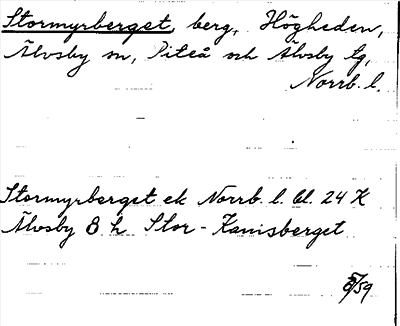 Stormyrberget, berg, Högheden,
Älvsby sn, Piteå och Älvsby tg,
Norrb. l.
Stormyrberget ek Norrb. l. bl. 24 K
Älvsby 8 h Stor-Kanisberget
/59